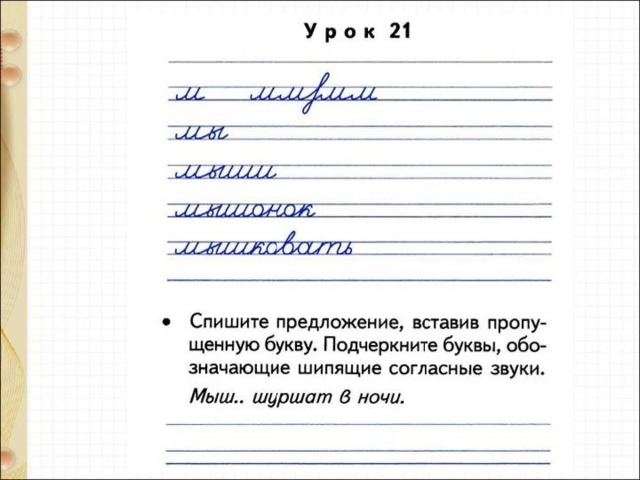 Урок 21
м ммрмм
мы
мыши
мышонок
мышковать
• Спишите предложение, вставив пропу-
щенную букву. Подчеркните буквы, обо-
значающие шипящие согласные звуки.
Мыш.. шуршат в ночи.